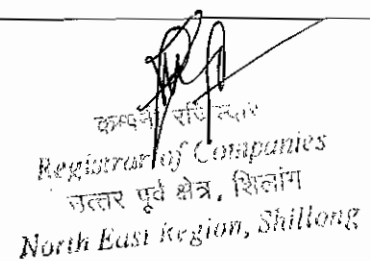 कम्पनी रजिस्ट्रार
Registrar of Companies
उत्तर पूर्व क्षेत्र, शिलांग
North East Region, Shillong